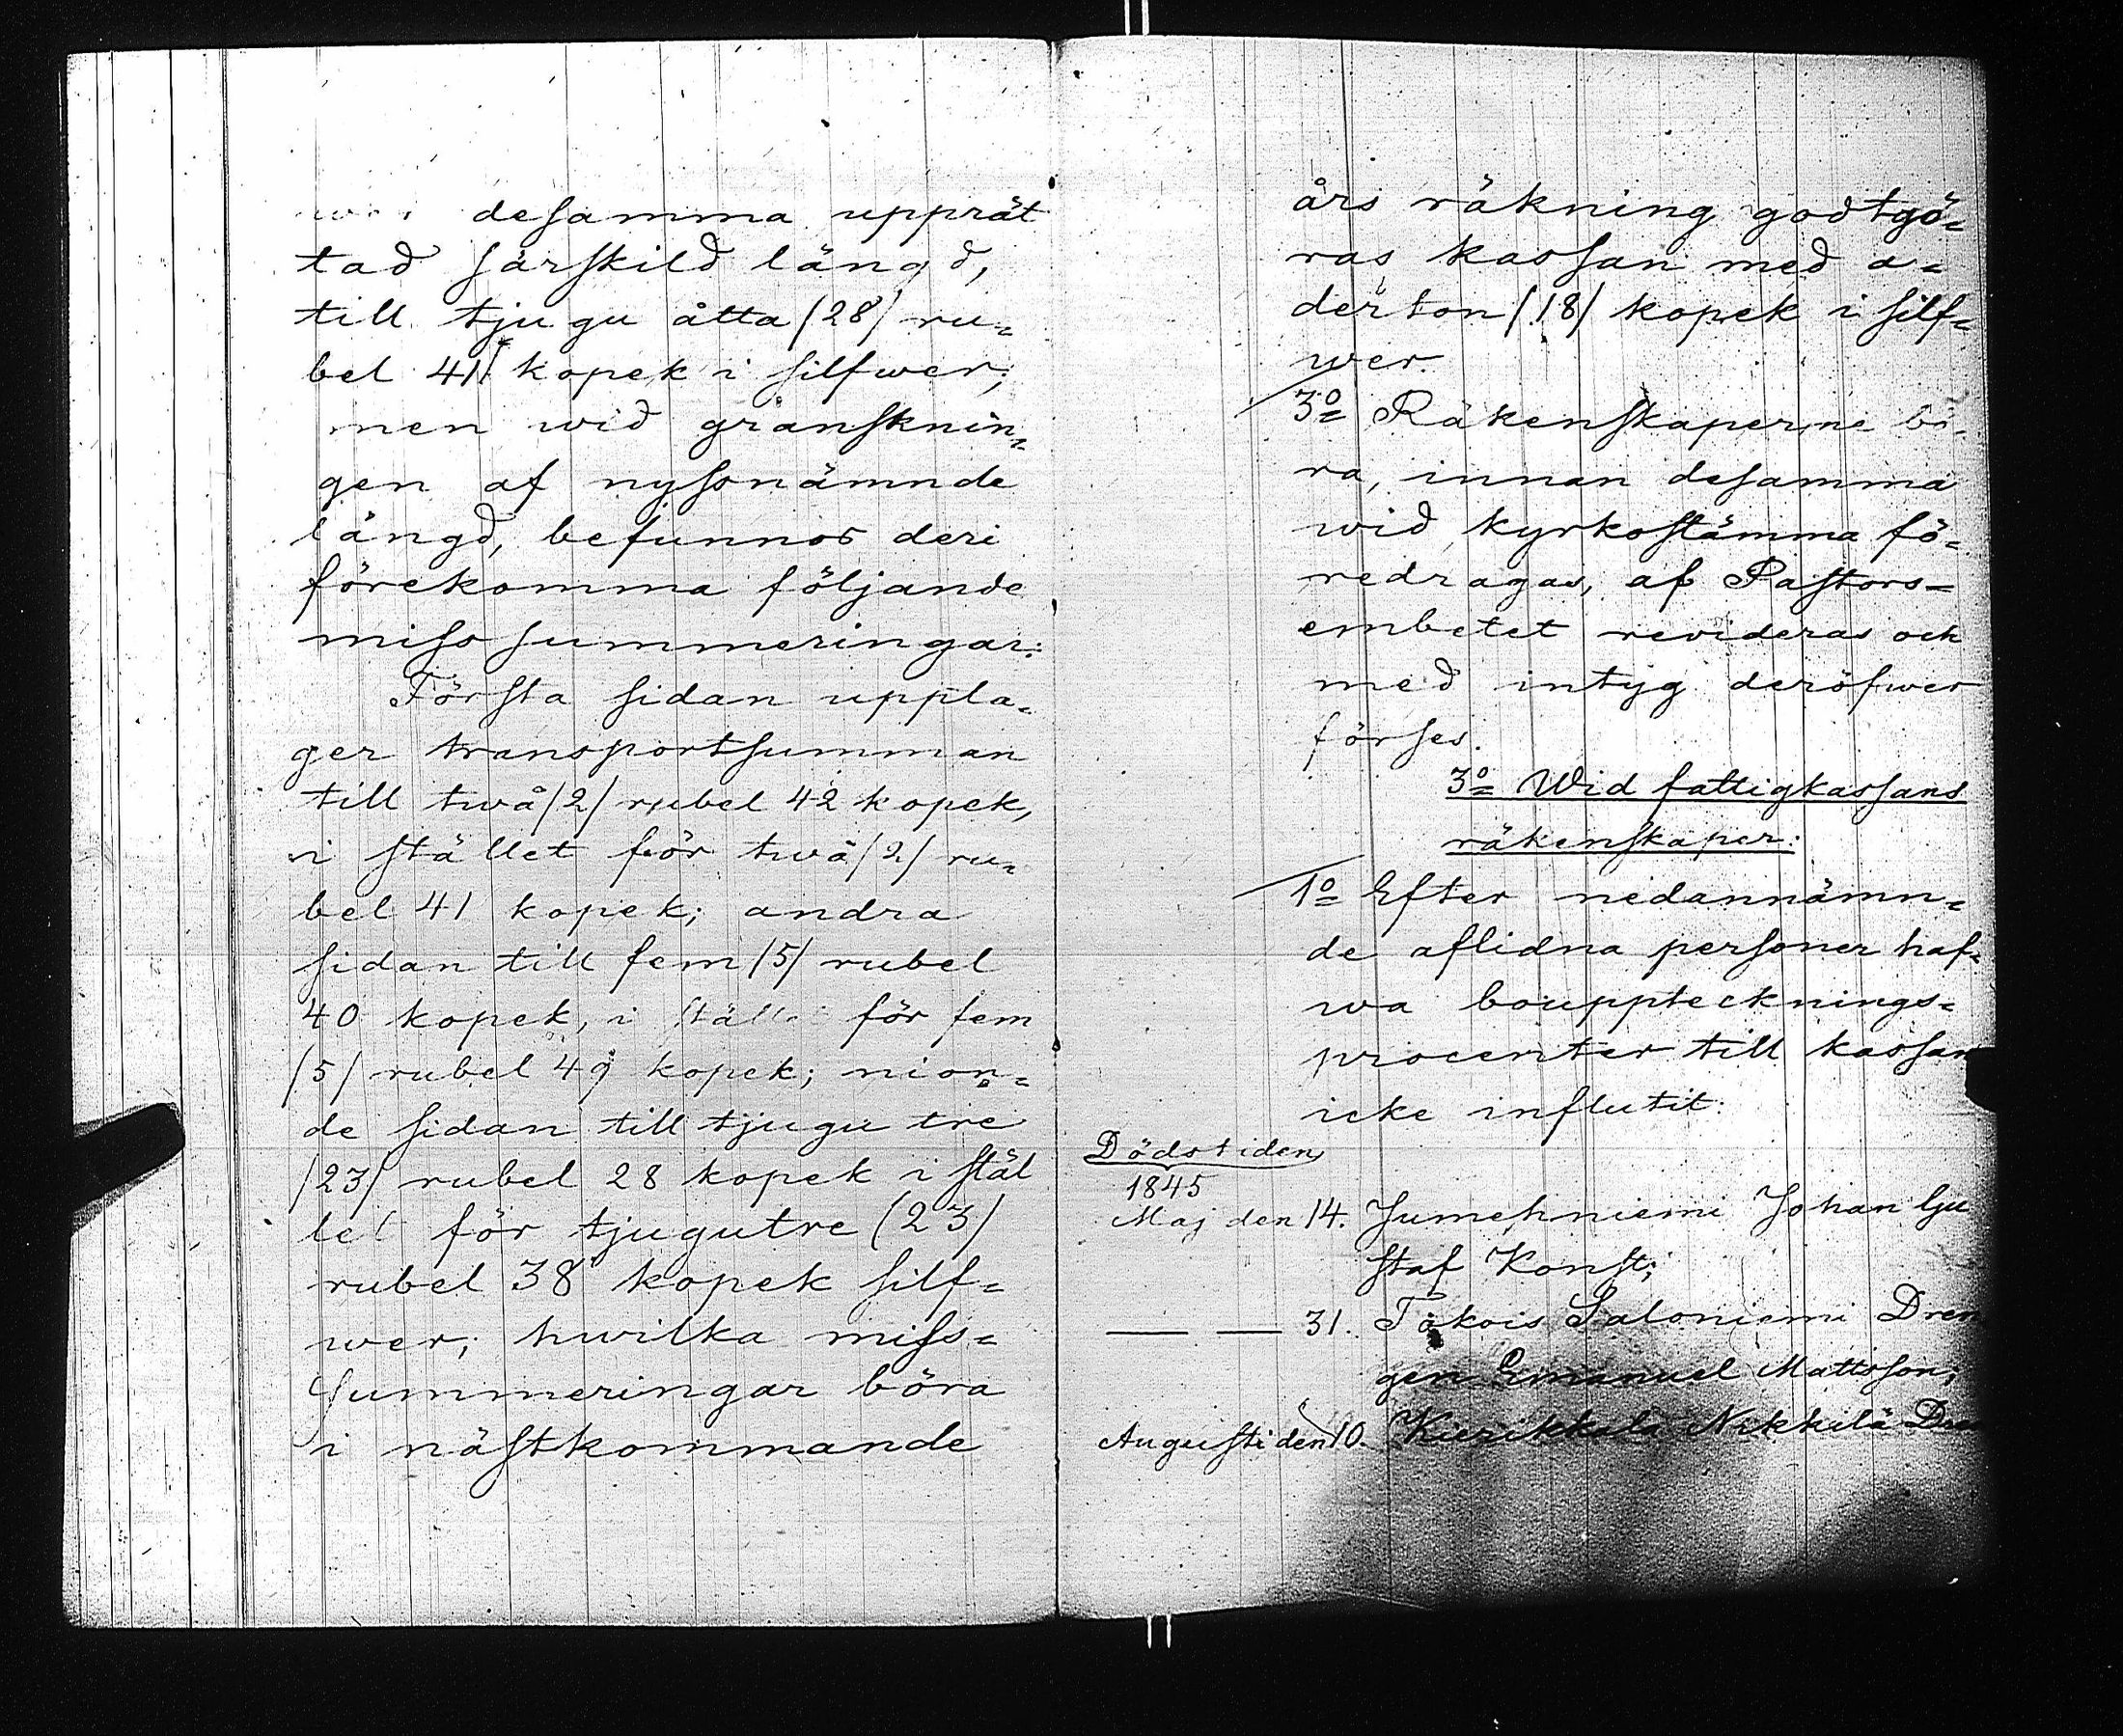 desamma upprät
tad särskild längd,
till tjugu åtta /28/ ru=
bel 41 kopek i silfwer;
men wid gransknin=
gen af nyssnämnde
längd, befunnos deri
förekomma följande
miss summeringar:
Första sidan uppla=
ger transportsumman
till twå /2/ rubel 42 kopek,
i stället för twå /2/ ru=
bel 41 kopek; andra
sidan till fem /5/ rubel
40 kopek, i stället för fem
/5/ rubel 49 kopek; nion=
de sidan till tjugu tre
/23/ rubel 28 kopek i stäl
let för tjugutre (23/
rubel 38 kopek silf=
wer; hwilka miss=
summeringar böra
i nästkommande
års räkning godtgö=
ras kassan med a=
derton /18/ kopek i silf=
wer.
3o Räkenskaperne bö=
ra, innan desamma
wid kyrkostämma fö=
redragas, af Pastors=
embetet revideras och
med intyg deröfwer
förses.
3o Wid fattigkassans
räkenskaper:
1o Efter nedannämn=
de aflidna personer haf=
wa boupptecknings=
procenter till kassan
icke influtit:
Dödstiden
1845
Maj den 14. Johan Gu
staf Konst;
— — 31. Tökois Saloniemi Dren
gen Emanuel Mattsson;
Augusti den 10. Kierikkala Nikkilä Dren